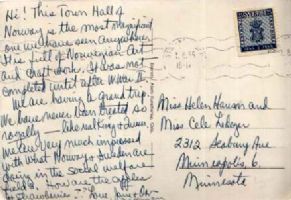 Hi! This Town Hall of
Norway is the most magnificent
one we have seen anywhere.
It is full of Norwegian Art
and Craft work. It was not
completed until after
We are having a grand trip.
We have never been treated so
royally — like nothing +
We are very much impressed
with what Norway + Sweden are
doing in the social welfare
fields. How are the apples
+ strawberries? Love
SVERIGE
Miss Helen Hanson and
Miss Cele
2312 Seabury Ave
Minneapolis 6
Minnesota